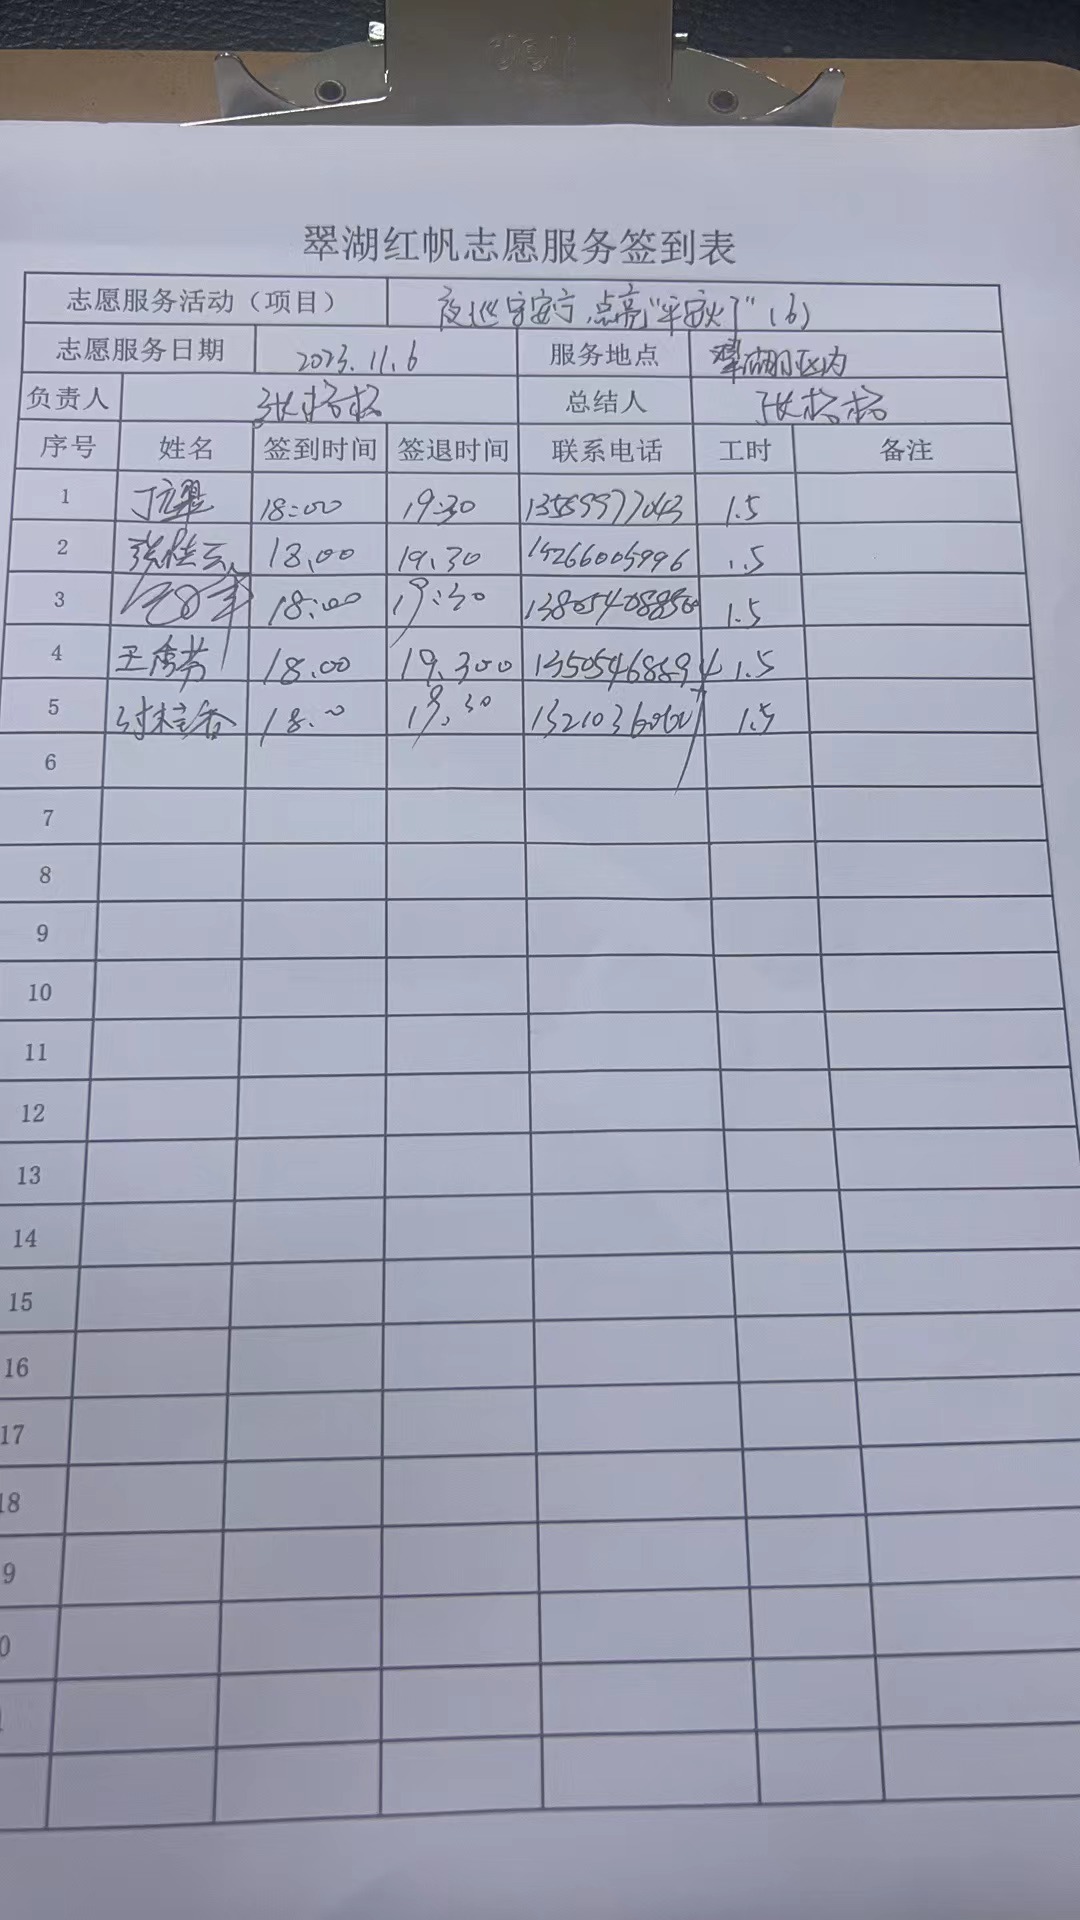 翠湖红帆志愿服务签到表
志愿服务活动（项目） 夜巡守安宁,点亮“平安灯”(6)
志愿服务日期 2023.11.6 服务地点 翠湖小区内
负责人 张格格 总结人 张格格
序号 姓名 签到时间 签退时间 联系电话 工时 备注
1 18:00 19:30 13589977043 1.5
2 张桂云 18.00 19.30 15266005996 1.5
3 18:00 19:30 1.5
4 18.00 19.300 13505468894 1.5
5 18.00 19.30 1.5
6
7
8
9
10
11
12
13
14
15
16
17
18
9
0